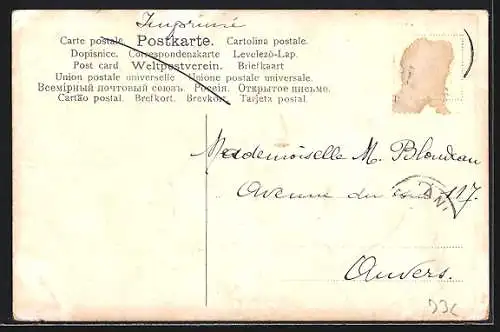 Imprimé
Carte postale. Postkarte. Cartolina postale.
Dopisnice. Correspondenzkarte Levelezö-Lap.
Post card. Weltpostverein. Briefkaart
Union postale universelle Unione postale universale.
Всемірный почтовый союзъ. Россія. Открытое письмо.
Cartão postal. Brefkort. Brevkort. Tarjeta postal.
Mademoiselle M. Blondeau
Avenue du 117.
Anvers.